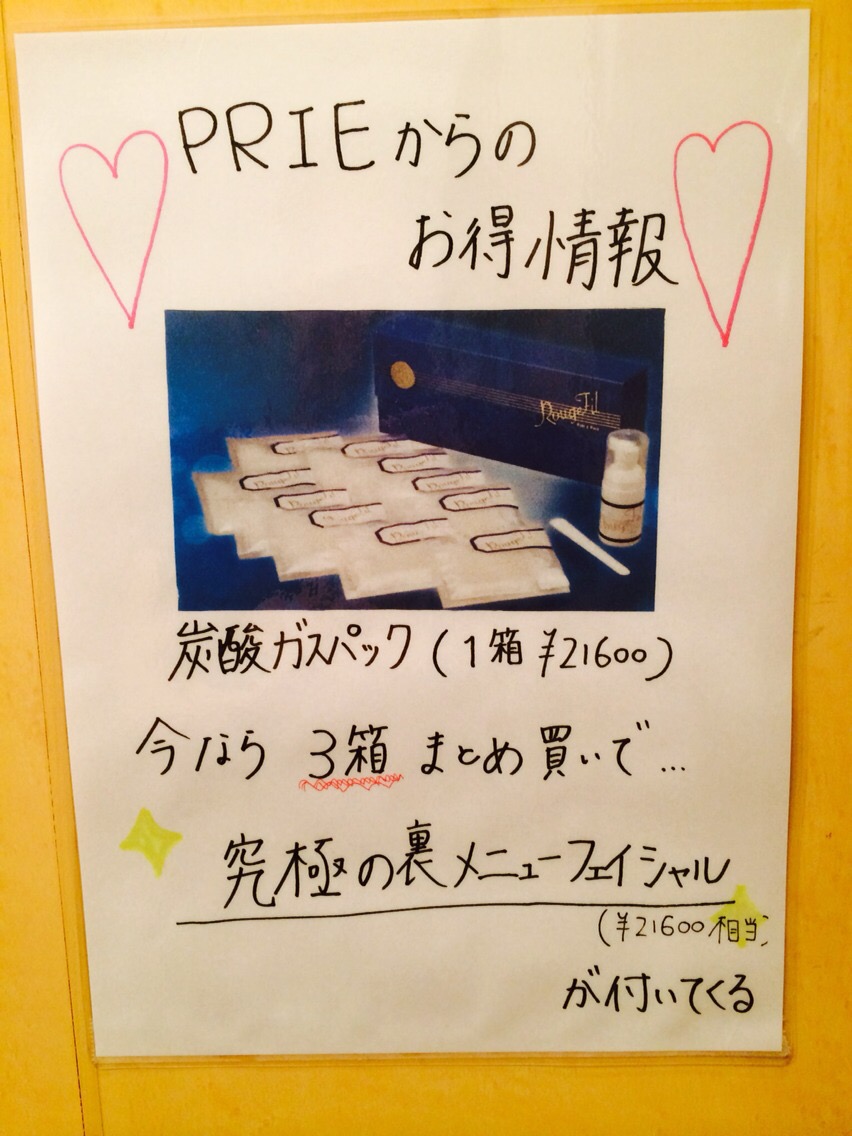 PRIEからの
お得情報
Rouge Fil
炭酸ガスパック(1箱 ¥21600)
今なら 3箱 まとめ買いで...
究極の裏メニューフェイシャル
(¥21600相当)
が付いてくる